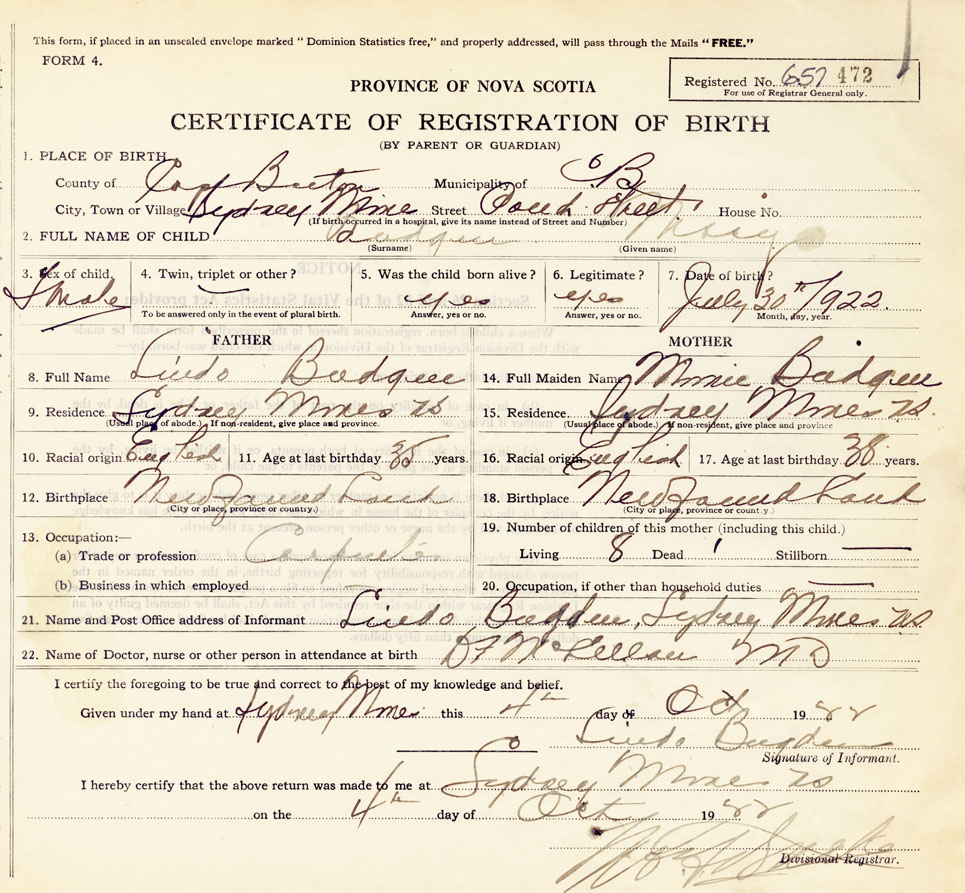 This form, if placed in an unsealed envelope marked "Dominion Statistics free," and properly addressed, will pass through the Mails "FREE."
FORM 4.
Registered No. 657 472
For use of Registrar General only.
PROVINCE OF NOVA SCOTIA
CERTIFICATE OF REGISTRATION OF BIRTH
(BY PARENT OR GUARDIAN)
1. PLACE OF BIRTH
County of Cape Breton Municipality of C B
City, Town or Village Sydney Mine Street Pond Street House No.
(If birth occurred in a hospital, give its name instead of Street and Number)
2. FULL NAME OF CHILD Budgen
(Surname) (Given name)
3. Sex of child. 4. Twin, triplet or other? 5. Was the child born alive? 6. Legitimate? 7. Date of birth?
yes yes July 30th 1922
To be answered only in the event of plural birth. Answer, yes or no. Answer, yes or no. Month, day, year.
FATHER MOTHER
8. Full Name Budgen 14. Full Maiden Name Budgen
9. Residence Sydney Mines NS 15. Residence Sydney Mines NS.
(Usual place of abode.) If non-resident, give place and province. (Usual place of abode.) If non-resident, give place and province
10. Racial origin English 11. Age at last birthday 35 years. 16. Racial origin English 17. Age at last birthday 38 years.
12. Birthplace Newfound Land 18. Birthplace Newfound Land
(City or place, province or country.) (City or place, province or country.)
13. Occupation:— 19. Number of children of this mother (including this child.)
(a) Trade or profession Living 8 Dead 1 Stillborn —
(b) Business in which employed 20. Occupation, if other than household duties —
21. Name and Post Office address of Informant Bugden, Sydney Mines NS
22. Name of Doctor, nurse or other person in attendance at birth McLellan MD
I certify the foregoing to be true and correct to the best of my knowledge and belief.
Given under my hand at Sydney Mines this 4th day of Oct 1922
Bugden
Signature of Informant.
I hereby certify that the above return was made to me at Sydney Mines NS
on the 4th day of Oct 1922
Divisional Registrar.